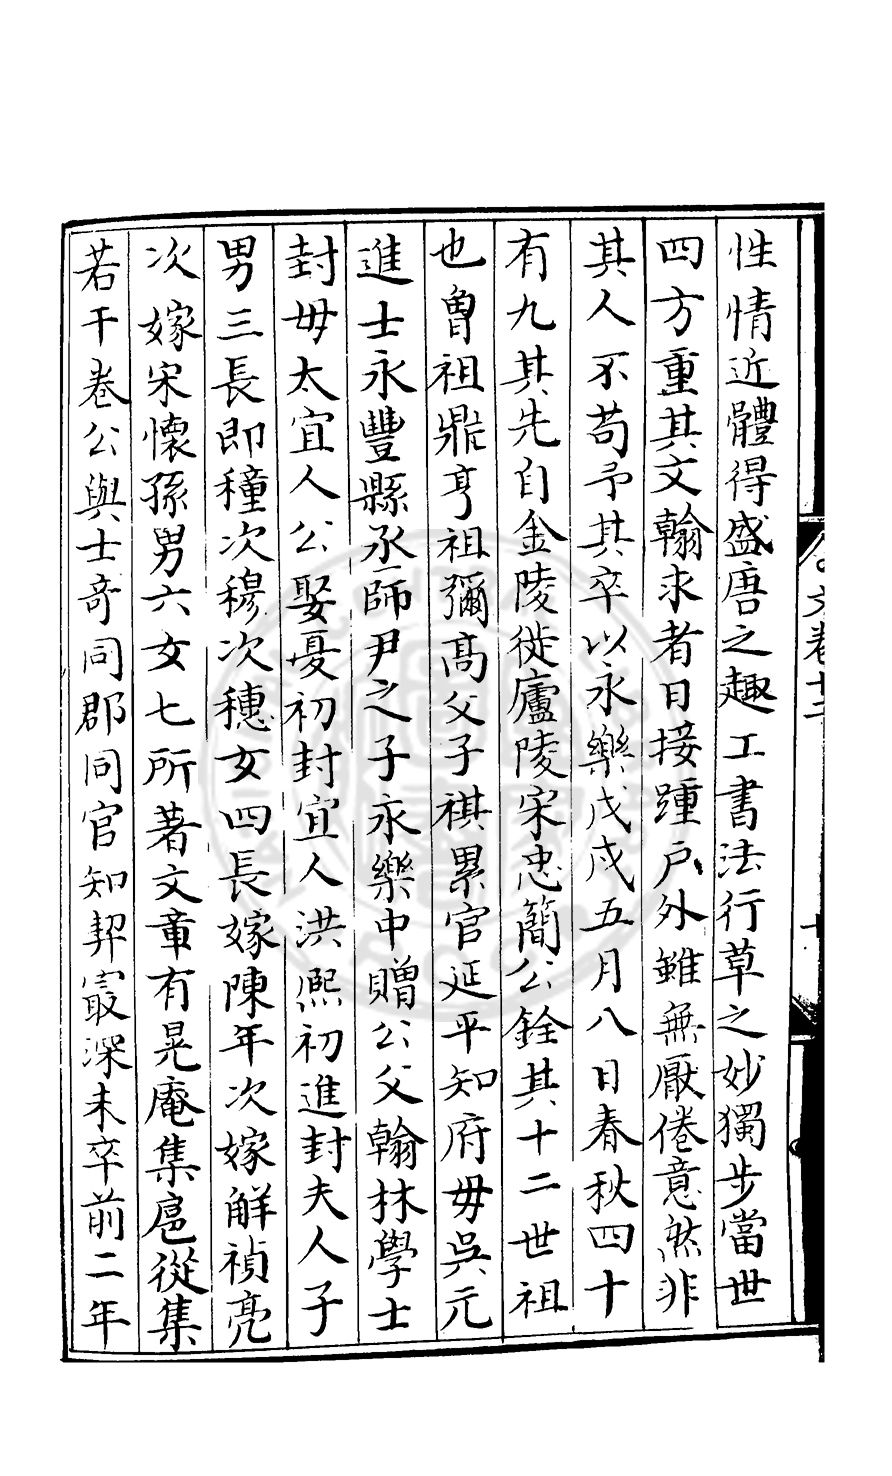 性情近體得盛唐之趣工書法行草之妙獨步當世
四方重其文翰求者日接踵戶外雖無厭倦意然非
其人不苟予其卒以永樂戊戌五月八日春秋四十
有九其先自金陵徙廬陵宋忠簡公銓其十二世祖
也曾祖鼎亨祖彌高父子祺累官延平知府毋吳元
進士永豐縣丞師尹之子永樂中贈公父翰林學士
封毋太宜人公娶憂初封宜人洪熈初進封夫人子
男三長即穜次穆次穗女四長嫁陳年次嫁解禎亮
次嫁宋懷孫男六女七所著文章有晃庵集扈從集
若干卷公與士奇同郡同官知契㝡深未卒前二年
文卷十二